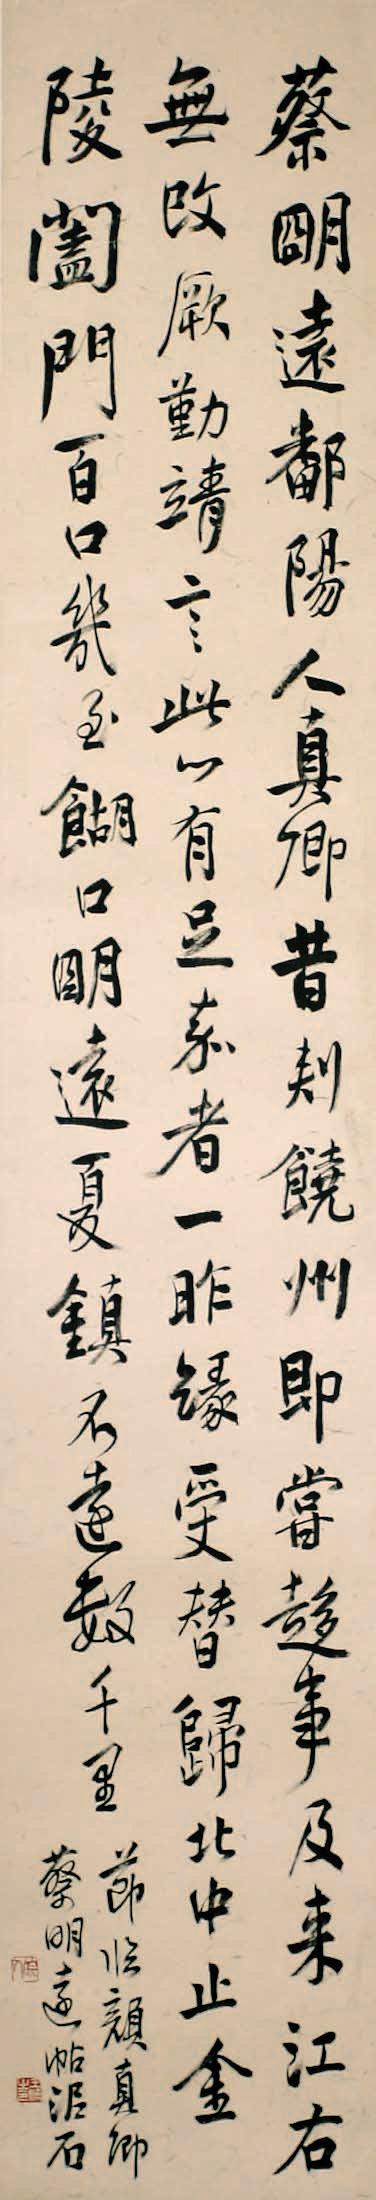 蔡明遠鄱陽人真卿昔刺饒州即嘗趍事及来江右
無改厥勤靖言此心有足嘉者一昨緣受替歸北中止金
陵闔門百口幾至餬口明遠夏鎮不遠數千里
節临顏真卿
蔡明遠帖泥石